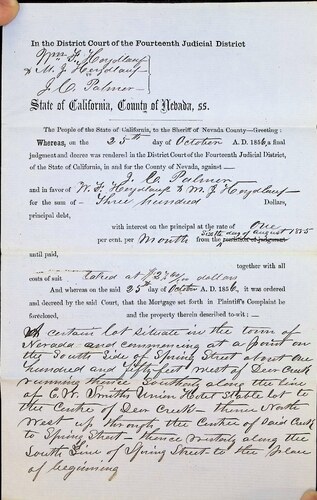 In the District Court of the Fourteenth Judicial District
Wm F. Heydlauf
& M. J. Heydlauf
J. C. Palmer
State of California, County of Nevada, ss.
The People of the State of California, to the Sheriff of Nevada County—Greeting:
Whereas, on the 25th day of October A. D. 1856, a final
judgment and decree was rendered in the District Court of the Fourteenth Judicial District,
of the State of California, in and for the County of Nevada, against—
J. C. Palmer
and in favor of W. F. Heydlauf & M. J. Heydlauf
for the sum of — Three hundred Dollars,
principal debt,
with interest on the principal at the rate of One
per cent. per Month from the Sixth day of August 1855
until paid,
together with all
costs of suit taxed at dollars
And whereas on the said 25th day of October A. D. 1856, it was ordered
and decreed by the said Court, that the Mortgage set forth in Plaintiff's Complaint be
foreclosed, and the property therein described to-wit:
A certain lot situate in the town of
Nevada and commencing at a point on
the South Side of Spring Street about one
hundred and fifty feet west of Deer Creek
running thence Southerly along the line
of C. W. Smiths Union Hotel Stable lot to
the Centre of Deer Creek — thence North
West up through the Centre of said Creek
to Spring Street — thence westerly along the
South Line of Spring Street to the place
of beginning